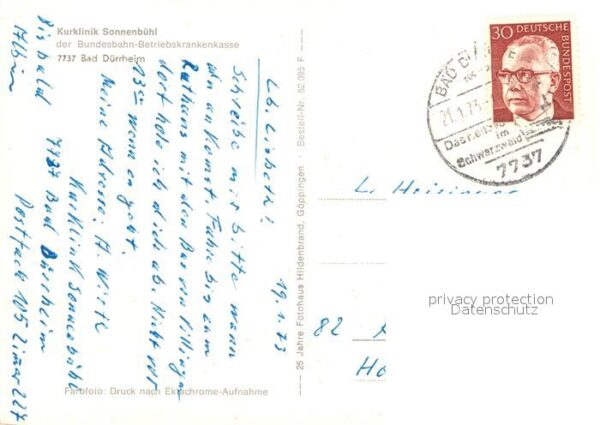 Kurklinik Sonnenbühl
der Bundesbahn-Betriebskrankenkasse
7737 Bad Dürrheim
19.1.73
Lb. Lisbeth!
Schreibe mir bitte wann
du ankomst. Fahre bis zum
Rathaus mit dem Bus von Villingen
dort hole ich dich ab. Nicht vor
13 00 wenn es geht.
Meine Adresse: A. Wirth
Kurklinik Sonnenbühl
7737 Bad Dürrheim
Postfach 105 Zimmer 227
Bis bald
Albin
Farbfoto: Druck nach Ektachrome-Aufnahme
25 Jahre Fotohaus Hildenbrand, Göppingen · Bestell-Nr. 52 095 F
30 DEUTSCHE
BUNDESPOST
BAD DÜ
21.1.73
im
Schwarzwald
7737
L. Heisinger
82
privacy protection
Datenschutz